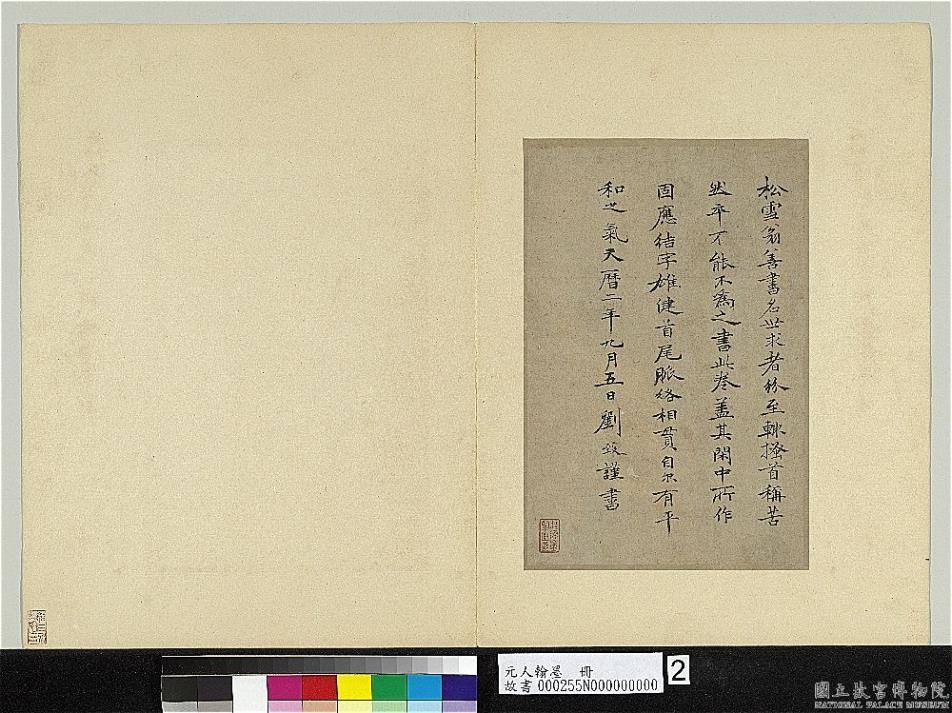 松雪翁善書名世求者紛至輒搔首稱苦
然卒不能不為之書此卷蓋其閑中所作
固應結字雄健首尾脈絡相貫自尔有平
和之氣天曆二年九月五日劉致謹書
元人翰墨 冊
故書 000255N000000000
2
國立故宮博物院
NATIONAL PALACE MUSEUM